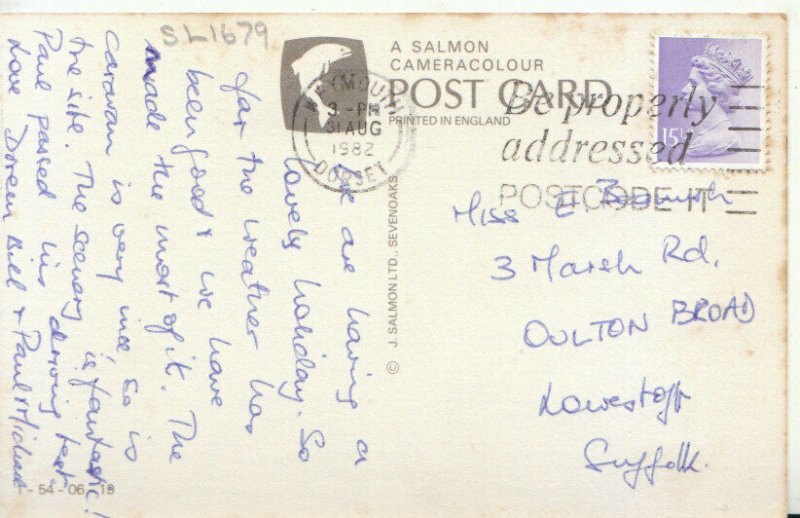 SL1679
A SALMON
CAMERACOLOUR
POST CARD
PRINTED IN ENGLAND
WEYMOUTH
3 - PM
31 AUG
1982
DORSET
Be properly
addressed
POSTCODE IT
15½
© J. SALMON LTD., SEVENOAKS
We are having a
lovely holiday. So
far the weather has
been good & we have
made the most of it. The
caravan is very nice, so is
the site. The scenery is fantastic!
Paul passed his driving test
Love Doreen Bill & Paul
Miss E.
3 Marsh Rd.
OULTON BROAD
Lowestoft
Suffolk.
1-54-06-19